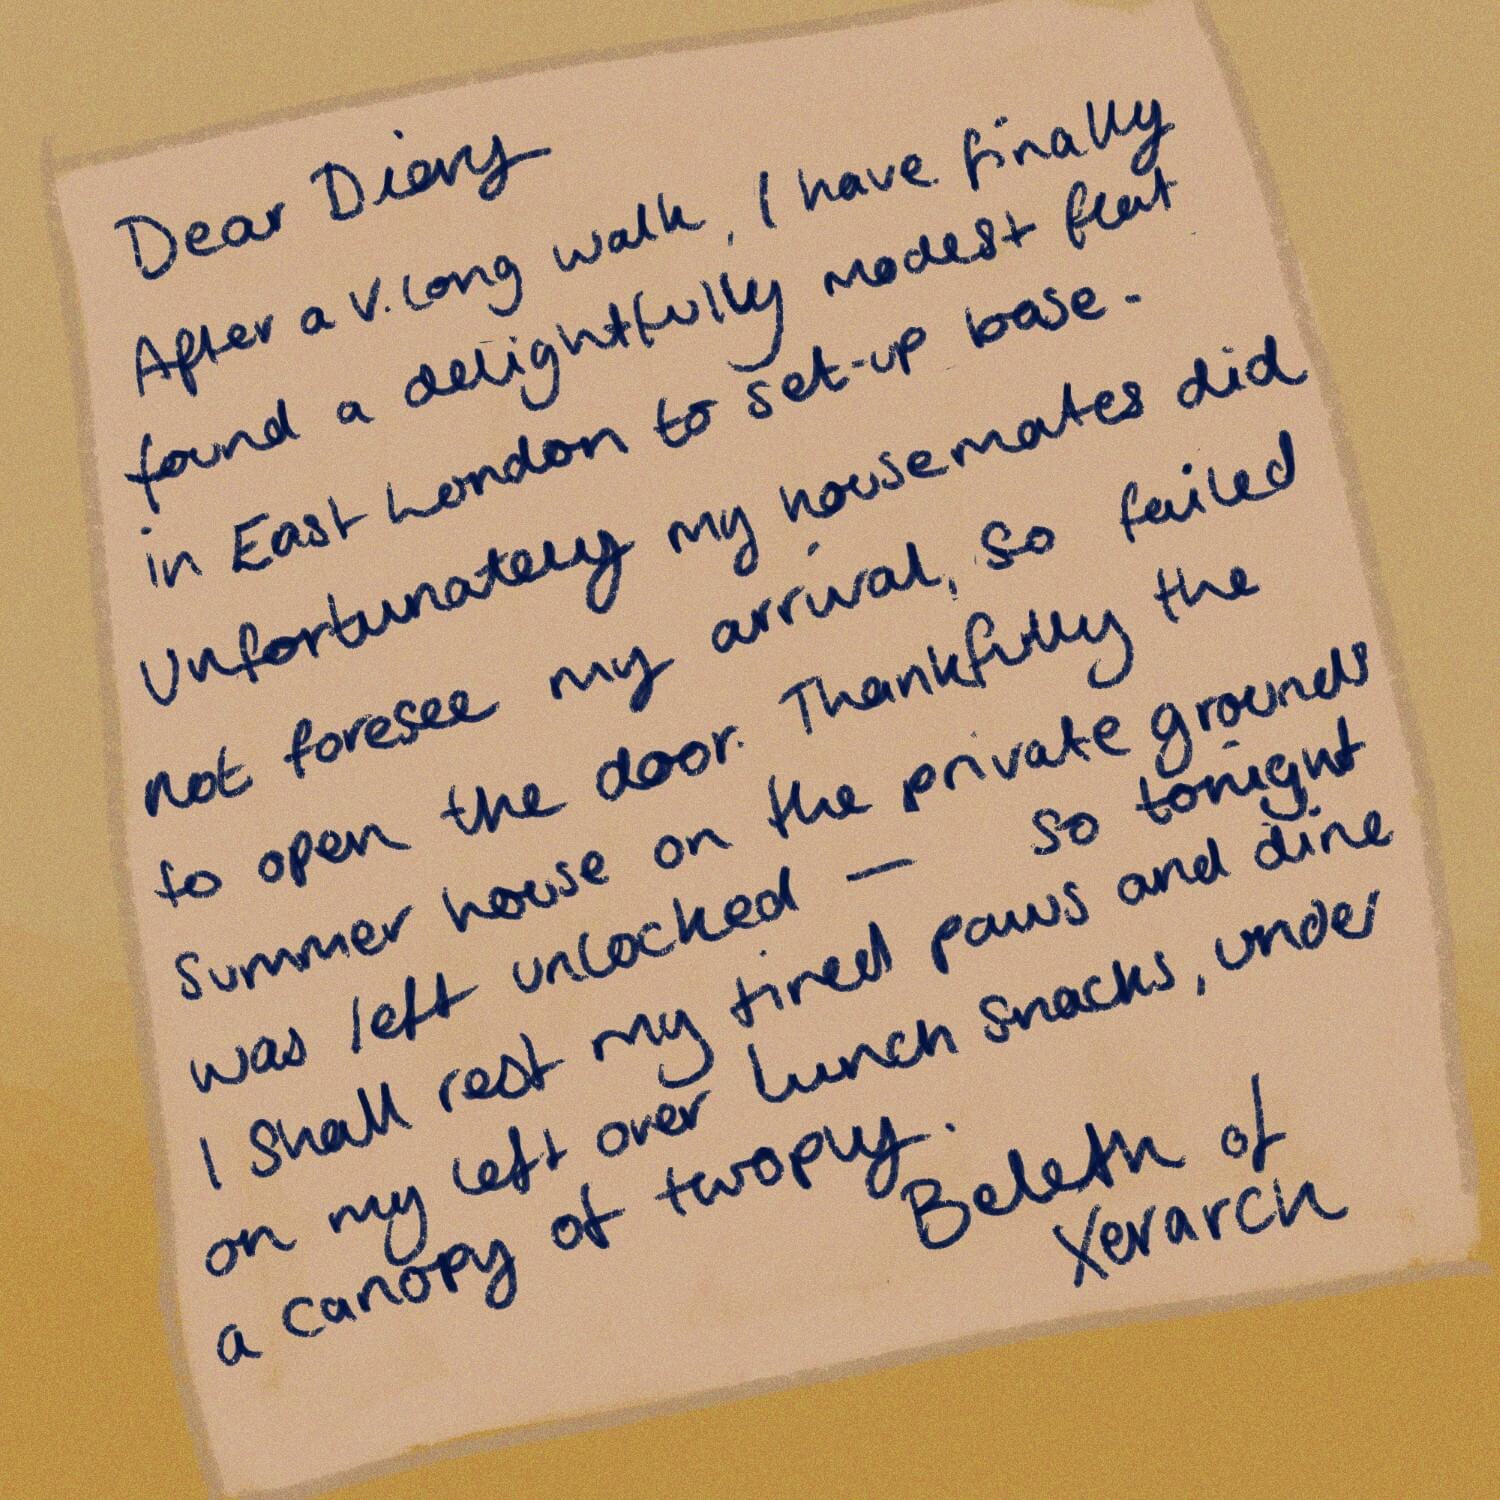 Dear Diary
After a v. long walk, I have finally
found a delightfully modest flat
in East London to set-up base.
Unfortunately my housemates did
not foresee my arrival, so failed
to open the door. Thankfully the
summer house on the private grounds
was left unlocked — so tonight
I shall rest my tired paws and dine
on my left over lunch snacks, under
a canopy of twoply.
Beleth of
Xerarch